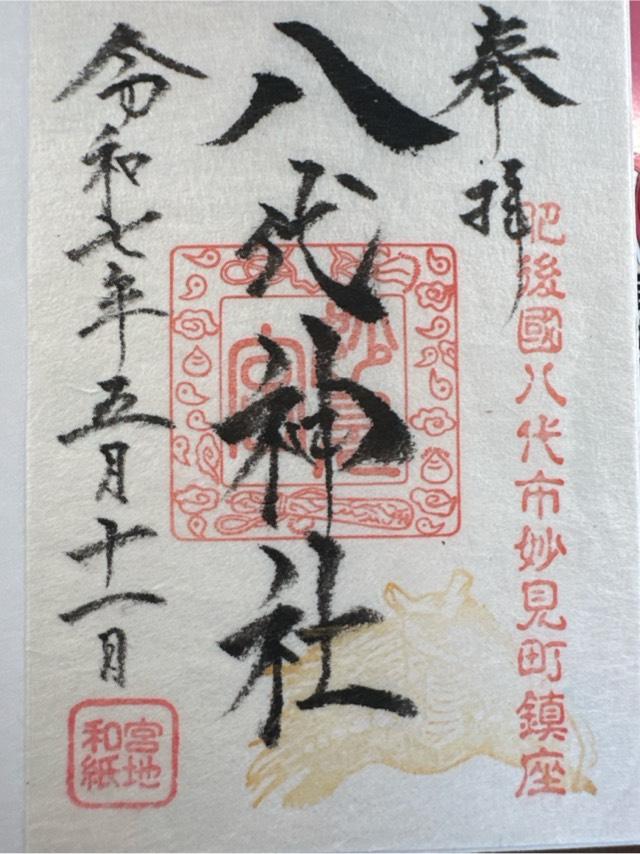 奉拝
肥後國八代市妙見町鎮座
八代神社
妙見宮
令和七年五月十一日
宮地
和紙